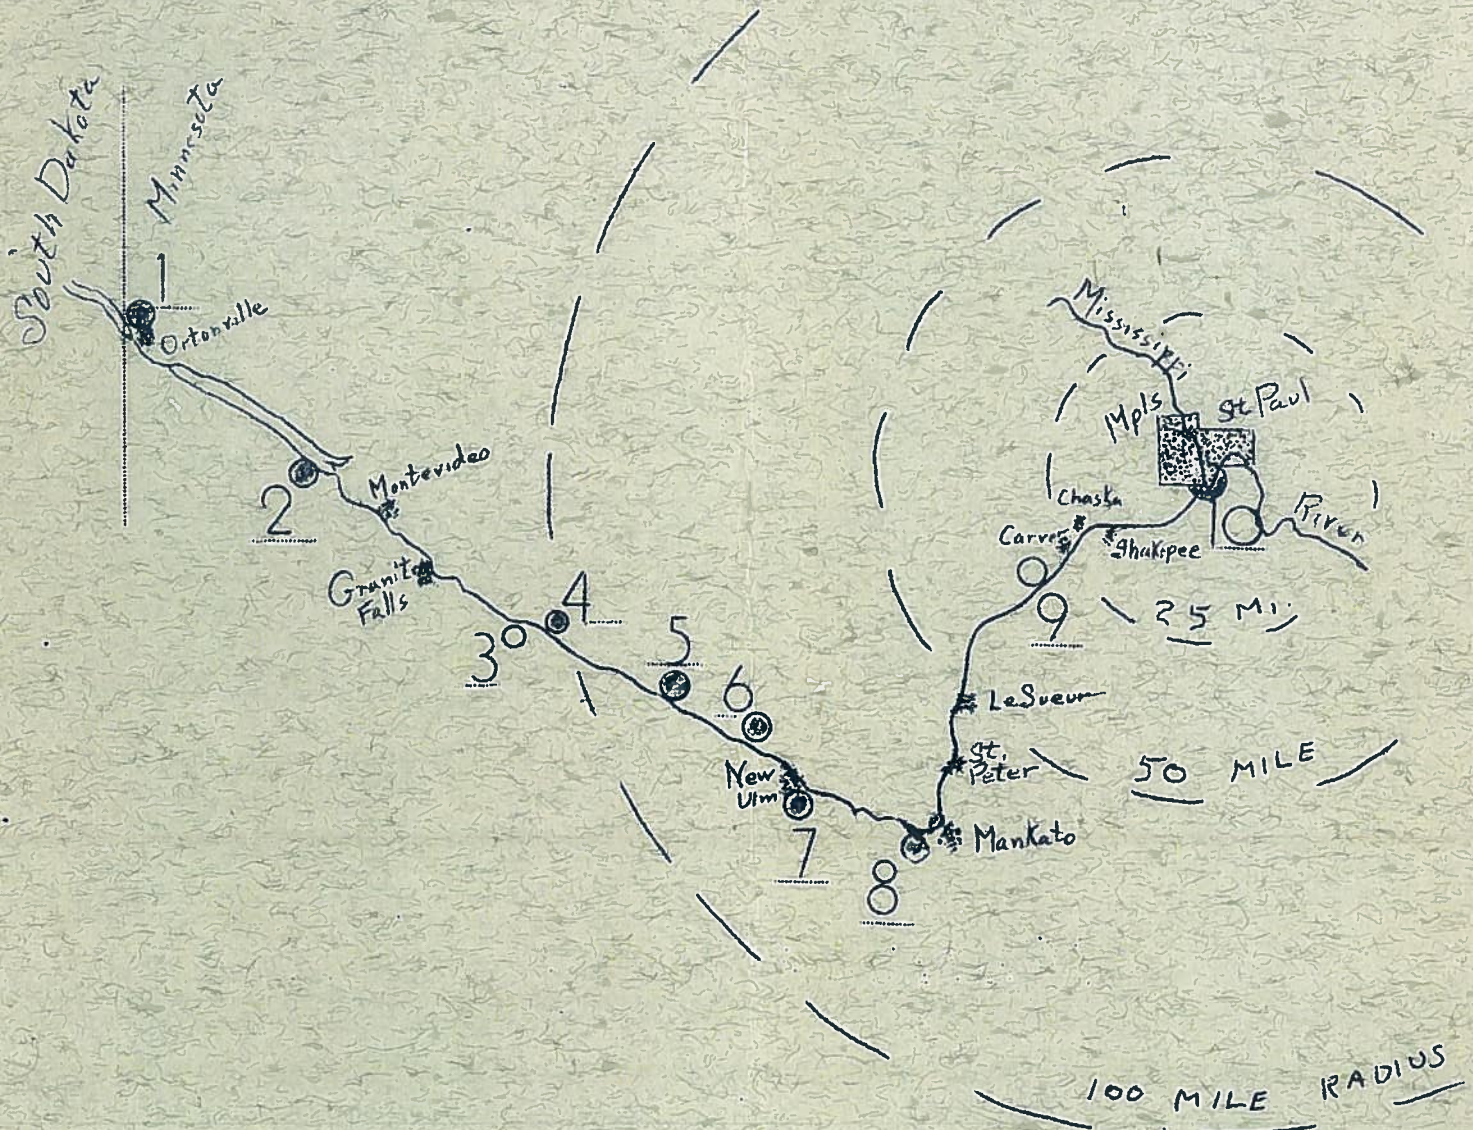 South Dakota
Minnesota
1
Ortonville
2
Montevideo
Granite
Falls
3
4
5
6
New
Ulm
7
8
Mankato
St.
Peter
LeSueur
9
Carver
Chaska
Shakopee
Mississippi
River
Mpls
St Paul
10
25 Mi.
50 MILE
100 MILE RADIUS